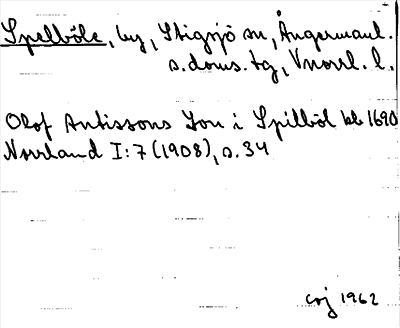 Spelböle, by, Stigsjö sn, Ångermanl.
s. doms. tg, Vnorrl. l.
Olof Antissons Son i Spilböl kb 1690
Norrland I:7 (1908), s. 34
coj 1962